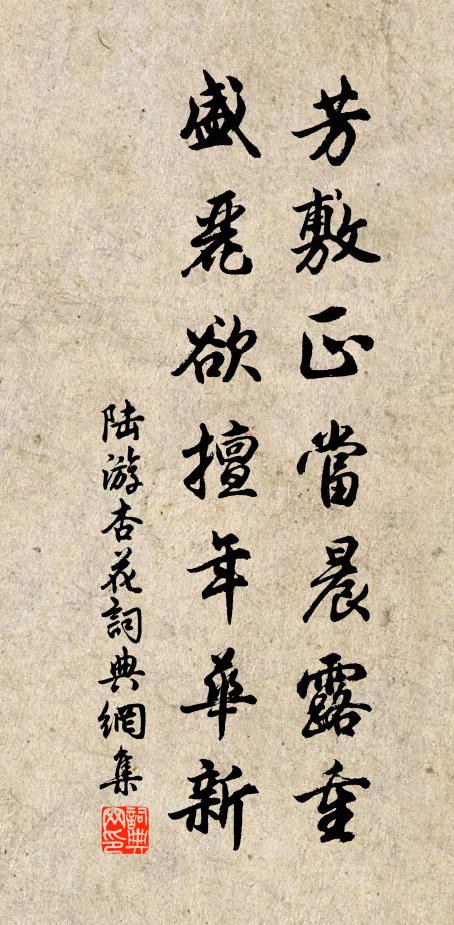 芳敷正當晨露重
盛麗欲擅年華新
陸游杏花詞典網集
詞典網印